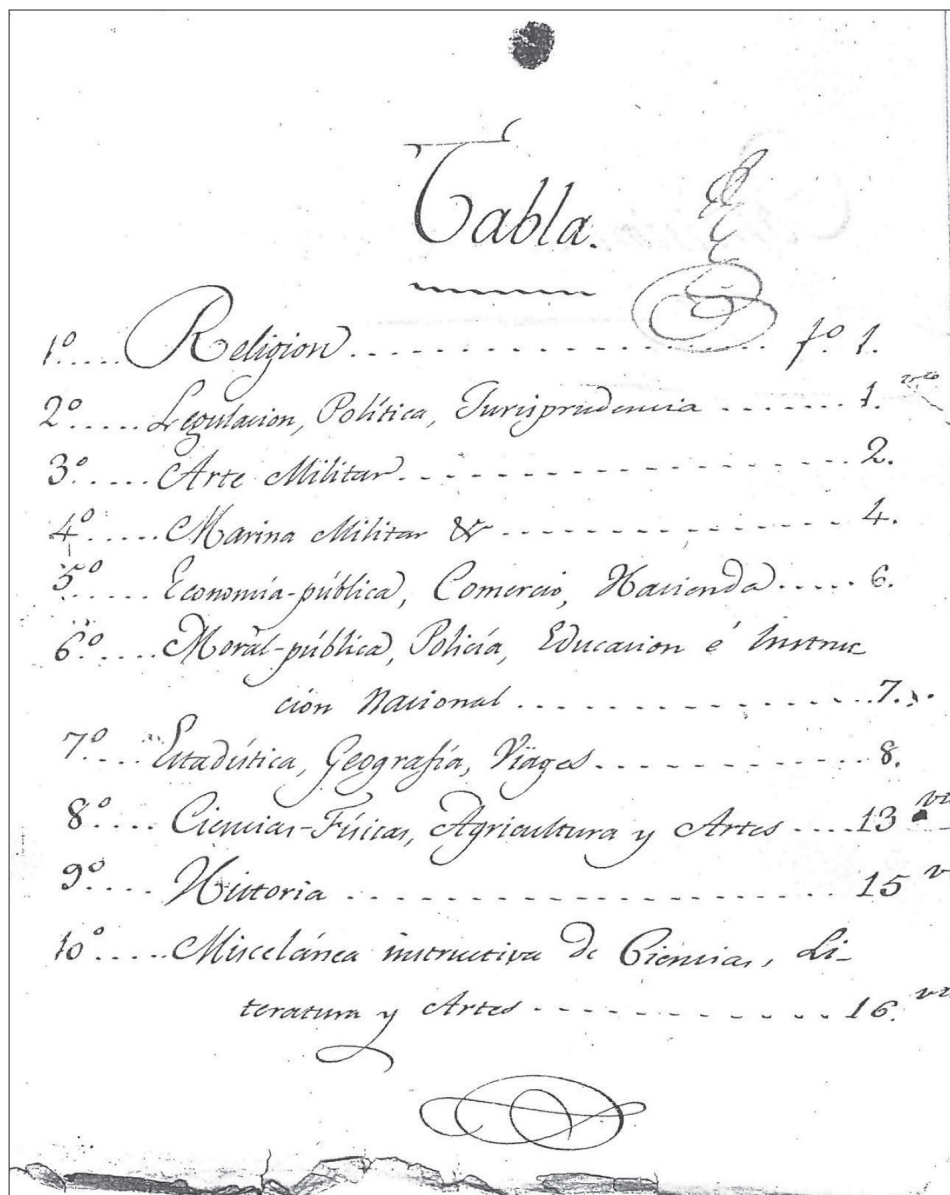 Tabla.
1º..... Religion........................ fº 1.
2º..... Legislacion, Política, Jurisprudencia ........ 1. vto
3º..... Arte Militar........................ 2.
4º..... Marina Militar &........................ 4.
5º..... Economía-pública, Comercio, Hacienda..... 6.
6º.... Moral-pública, Policía, Educacion é Instruc
ción Nacional ................ 7.
7º.... Estadística, Geografía, Viäges............ 8.
8º.... Ciencias-Físicas, Agricultura y Artes .... 13
9º.... Historia ........................ 15 v
10º..... Miscelánea instructiva de Ciencias, Li-
teratura y Artes ............ 16.